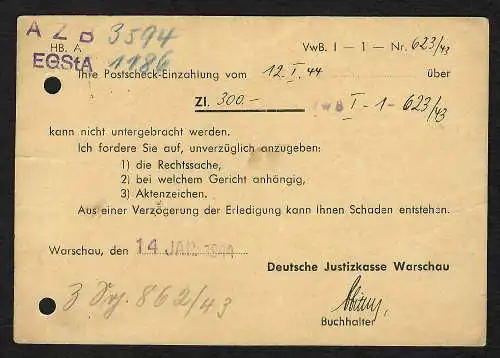 A Z B 3594
HB. A VwB. I – 1 – Nr. 623/43
EGStA 1186
Ihre Postscheck-Einzahlung vom 12. I. 44 über
Zl. 300.–
VwB I - 1 - 623/43
kann nicht untergebracht werden.
Ich fordere Sie auf, unverzüglich anzugeben:
1) die Rechtssache,
2) bei welchem Gericht anhängig,
3) Aktenzeichen.
Aus einer Verzögerung der Erledigung kann Ihnen Schaden entstehen.
Warschau, den 14 JAN. 1944
Deutsche Justizkasse Warschau
3 862/43
Buchhalter